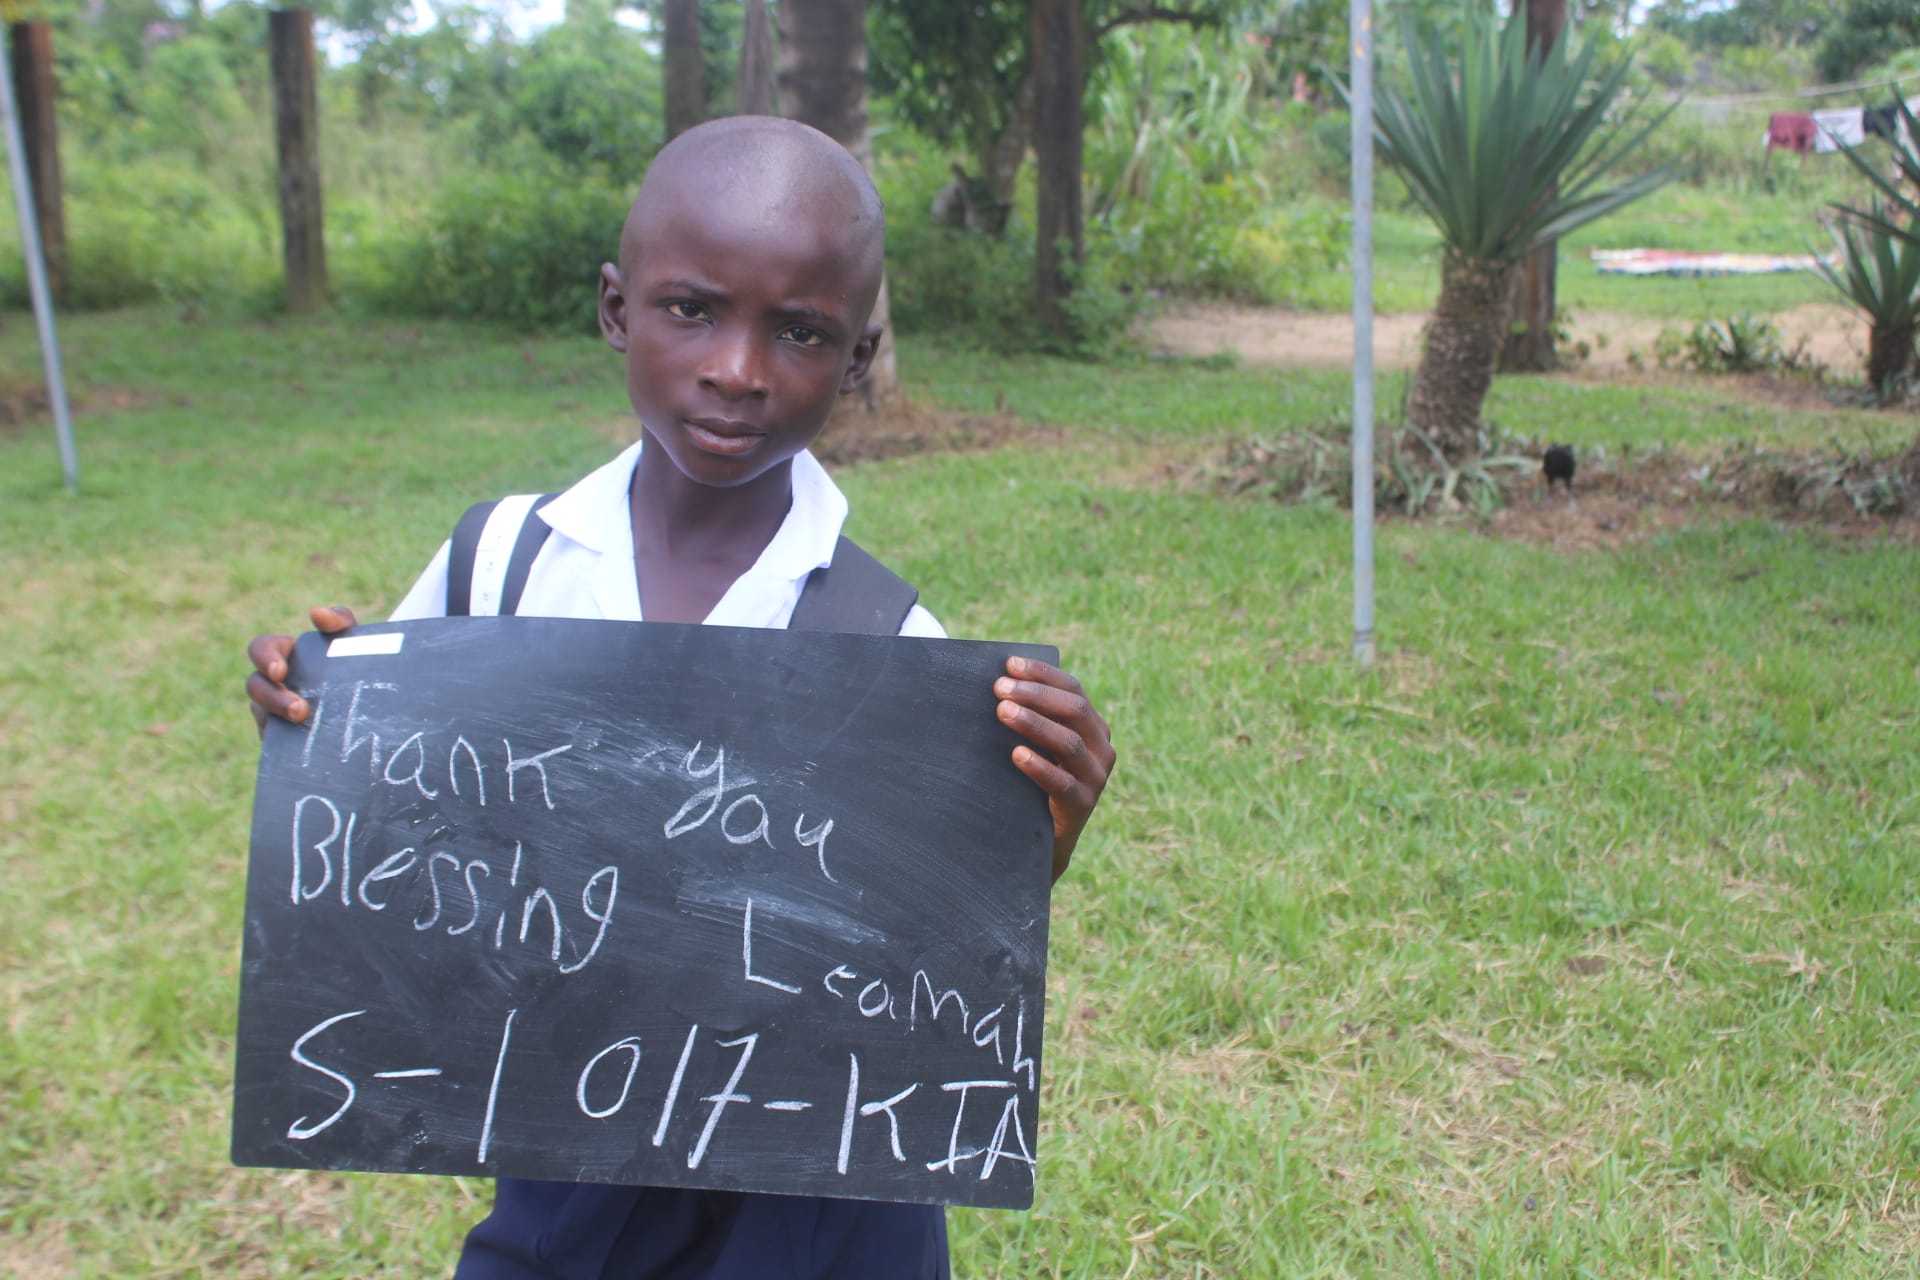 Thank yau
Blessing Leamah
S-1017-KIA